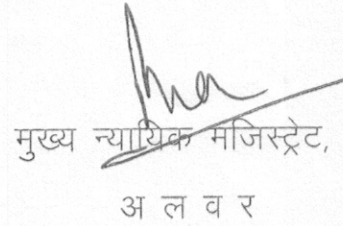 मुख्य न्यायिक मजिस्ट्रेट,
अ ल व र